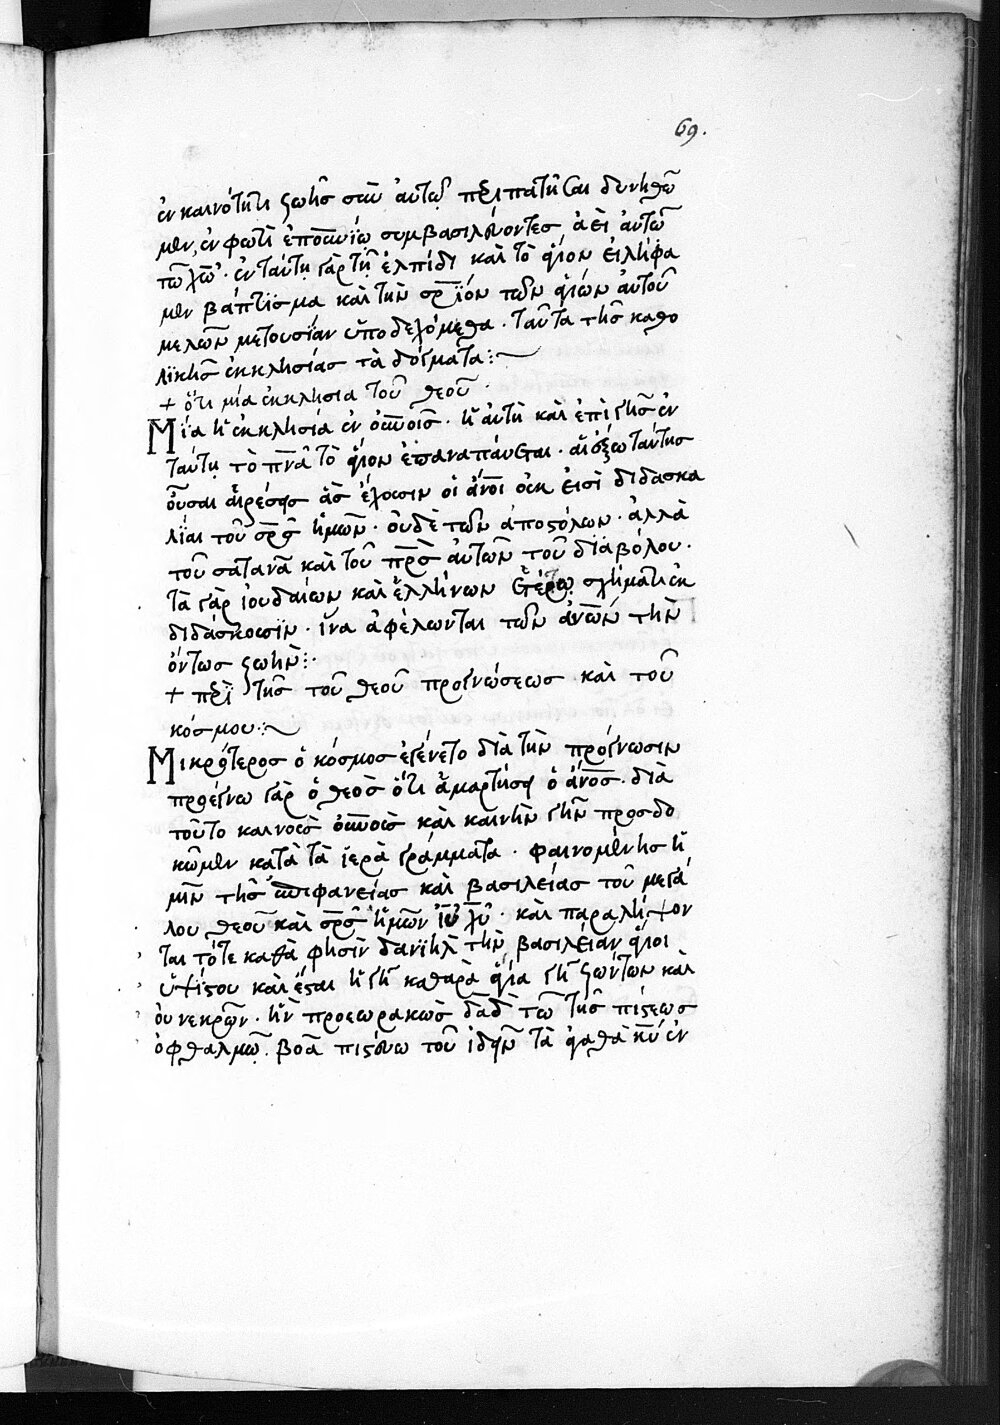 69.
ἐν καινότητι ζωῆς σὺν αὐτῶ περιπατῆσαι δυνηθῶ
μεν, ἐν φωτὶ ἐπουνίω συμβασιλεύοντες ἀεὶ αὐτῶ
τῶ χῶ· ἐν ταύτη γὰρ τῆ ἐλπίδι καὶ τὸ ἅγιον εἰλήφα
μεν βάπτϊσμα καὶ τὴν σρϊόν τῶν ἁγίων αὐτοῦ
μελῶν μετουσίαν ὑποδεχόμεθα. ταῦτα τῆς καθο
λϊκῆς ἐκκλησίας τὰ δόγματα:~
+ ὅτι μία ἐκκλησια τοῦ θεοῦ·
Μία ἡ ἐκκλησία ἐν οὐνοις· ἡ αὐτὴ καὶ ἐπὶ γῆς ἐν
ταύτη τὸ πνα τὸ ἅγιον ἐπαναπάυεται· αἱ ἔξω ταύτης
οὖσαι αἱρέσεις ἃς ἔχουσιν οἱ ἄνοι οὐκ εἰσὶ διδασκα
λίαι τοῦ σρς ἡμῶν· οὐδὲ τῶν ἀποστόλων· ἀλλὰ
τοῦ σατανᾶ καὶ τοῦ πρς αὐτῶν τοῦ διαβόλου·
τὰ γὰρ ἰουδαίων καὶ ἑλλήνων ἑτέρω σχήματι ἐκ
διδάσκουσϊν· ἵνα ἀφέλωνται τῶν ἀνων τὴν
ὄντως ζωὴν:·
+ περὶ τῆς τοῦ θεοῦ προγνώσεως καὶ τοῦ
κόσμου:~
Μικρότερος ὁ κόσμος ἐγένετο διὰ τὴν πρόγνωσιν
προέγνω γὰρ ὁ θεὸς ὅτι ἁμαρτήσει ὁ ἄνος· διὰ
τοῦτο καινοὺς οὐνοὺς καὶ καινὴν γῆν προσδο
κῶμεν κατὰ τὰ ἱερὰ γράμματα· φαινομένης ἡ
μῖν τῆς ἐπιφανείας καὶ βασιλείας τοῦ μεγά
λου θεοῦ καὶ σρς ἡμῶν ἰυ χυ· καὶ παραλήψον
ται τότε καθά φησὶν δανιὴλ τὴν βασιλείαν ἅγιοι
ὑψίστου καὶ ἔσται ἡ γῆ καθαρὰ ἁγία γῆ ζώντων καὶ
ου νεκρῶν· ἣν προεωρακὼς δαδ τῶ τῆς πίστεως
ὀφθαλμῶ. βοᾶ πιστεύω τοῦ ἰδεῖν τὰ ἀγαθὰ κυ ἐν